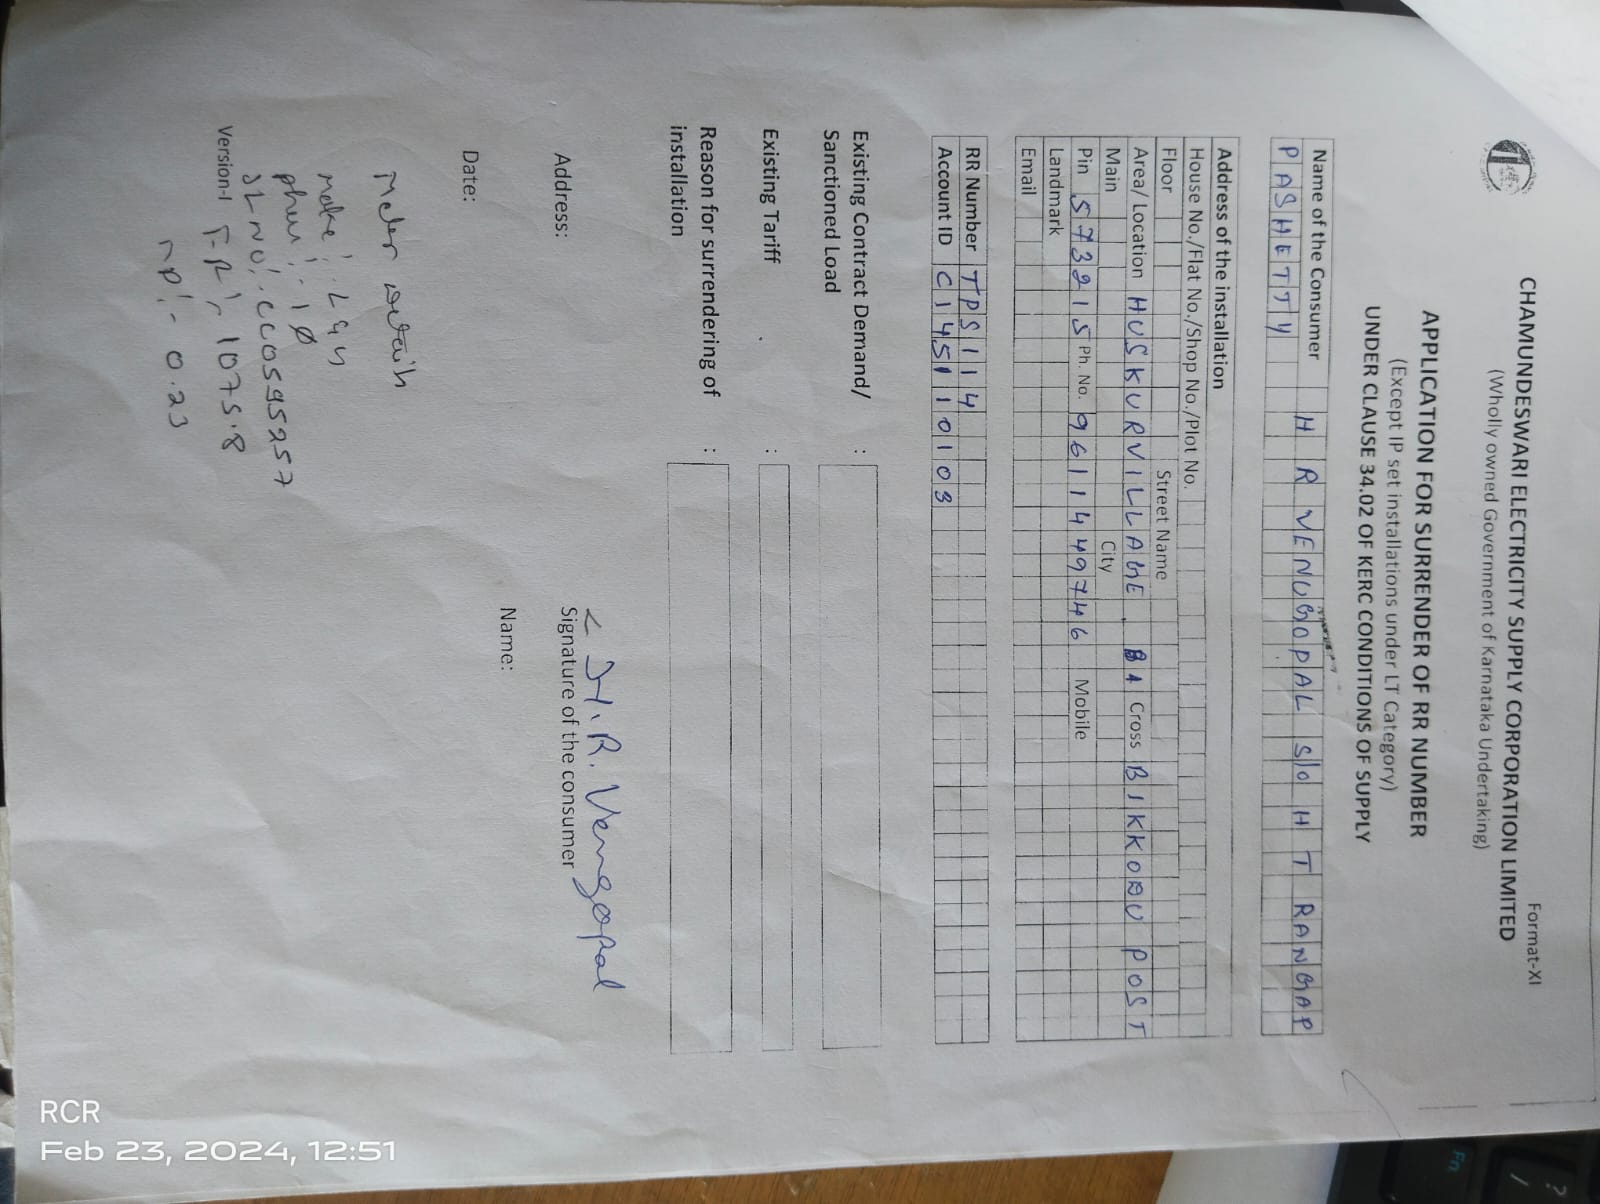 Format-XI
CHAMUNDESWARI ELECTRICITY SUPPLY CORPORATION LIMITED
(Wholly owned Government of Karnataka Undertaking)
APPLICATION FOR SURRENDER OF RR NUMBER
(Except IP set installations under LT Category)
UNDER CLAUSE 34.02 OF KERC CONDITIONS OF SUPPLY
Name of the Consumer H R VENUGOPAL S/O H T RANGAP
PASHETTY
Address of the installation
House No./Flat No./Shop No./Plot No.
Floor Street Name
Area/ Location HUSKUR VILLAGE Cross BIKKODU POST
Main City
Pin 573215 Ph. No. 9611449746 Mobile
Landmark
Email
RR Number TPS114
Account ID C145110103
Existing Contract Demand/ :
Sanctioned Load
Existing Tariff :
Reason for surrendering of :
installation
H.R. Venugopal
Address: Signature of the consumer
Name:
Date:
Meter details
make : L&G
phase : 1Ø
SLNO: CC0595257
Version-I F.R :- 1075.8
:- 0.23
RCR
Feb 23, 2024, 12:51
Fn
?
/